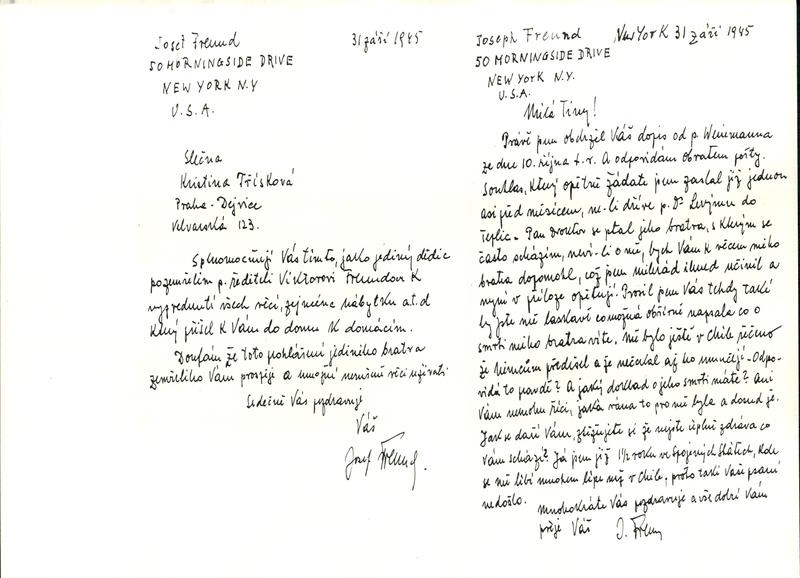 Josef Freund 31 září 1945
50 MORNINGSIDE DRIVE
NEW YORK N.Y
U.S.A.
Slečna
Kristina Třísková
Praha-Dejvice
Velvarská 123.
Splnomocňuji Vás tímto, jako jediný dědic
po zemřelém p. řediteli Viktorovi Freundovi k
vyzvednutí všech věcí, zejména nábytku a.t.d
který přišel k Vám do domu k domácím.
Doufám že toto prohlášení jediného bratra
zemřelého Vám prospěje a umožní nerušeně věci užívati
Srdečně Vás pozdravuje
Váš
Josef Freund.
Joseph Freund New York 31 září 1945
50 MORNINGSIDE DRIVE
NEW YORK N.Y.
U.S.A.
Milá Tiny!
Právě jsem obdržel Váš dopis od p
ze dne 10. října t.r. A odpovídám obratem pošty.
Souhlas, který opětně žádáte jsem zaslal již jednou
asi před měsícem, ne-li dříve p. Dr Levýmu do
Teplic. Pan Doktor se ptal jeho bratra, s kterým se
často scházím, neví-li o mě, bych Vám k věcem mého
bratra dopomohl, což jsem milerád ihned učinil a
nyní v příloze opětuji. Prosil jsem Vás tehdy také
by jste mě laskavě co možná obšírně napsala co o
smrti mého bratra víte, mě bylo ještě v Chile řečeno
že Němcům předešel a že nečekal až ho umučejí. Odpo-
vídá to pravdě? A jaký doklad o jeho smrti máte? Ani
Vám nemohu říci, jaká rána to pro mě byla a dosud je.
Jak se daří Vám, stěžujete si že nejste úplně zdráva co
Vám schází? Já jsem již 1½ roku ve Spojených Státech, kde
se mě líbí mnohem lépe než v Chile, proto také Vaše psaní
nedošlo.
Mnohokráte Vás pozdravuje a vše dobré Vám
přeje Váš J. Freund